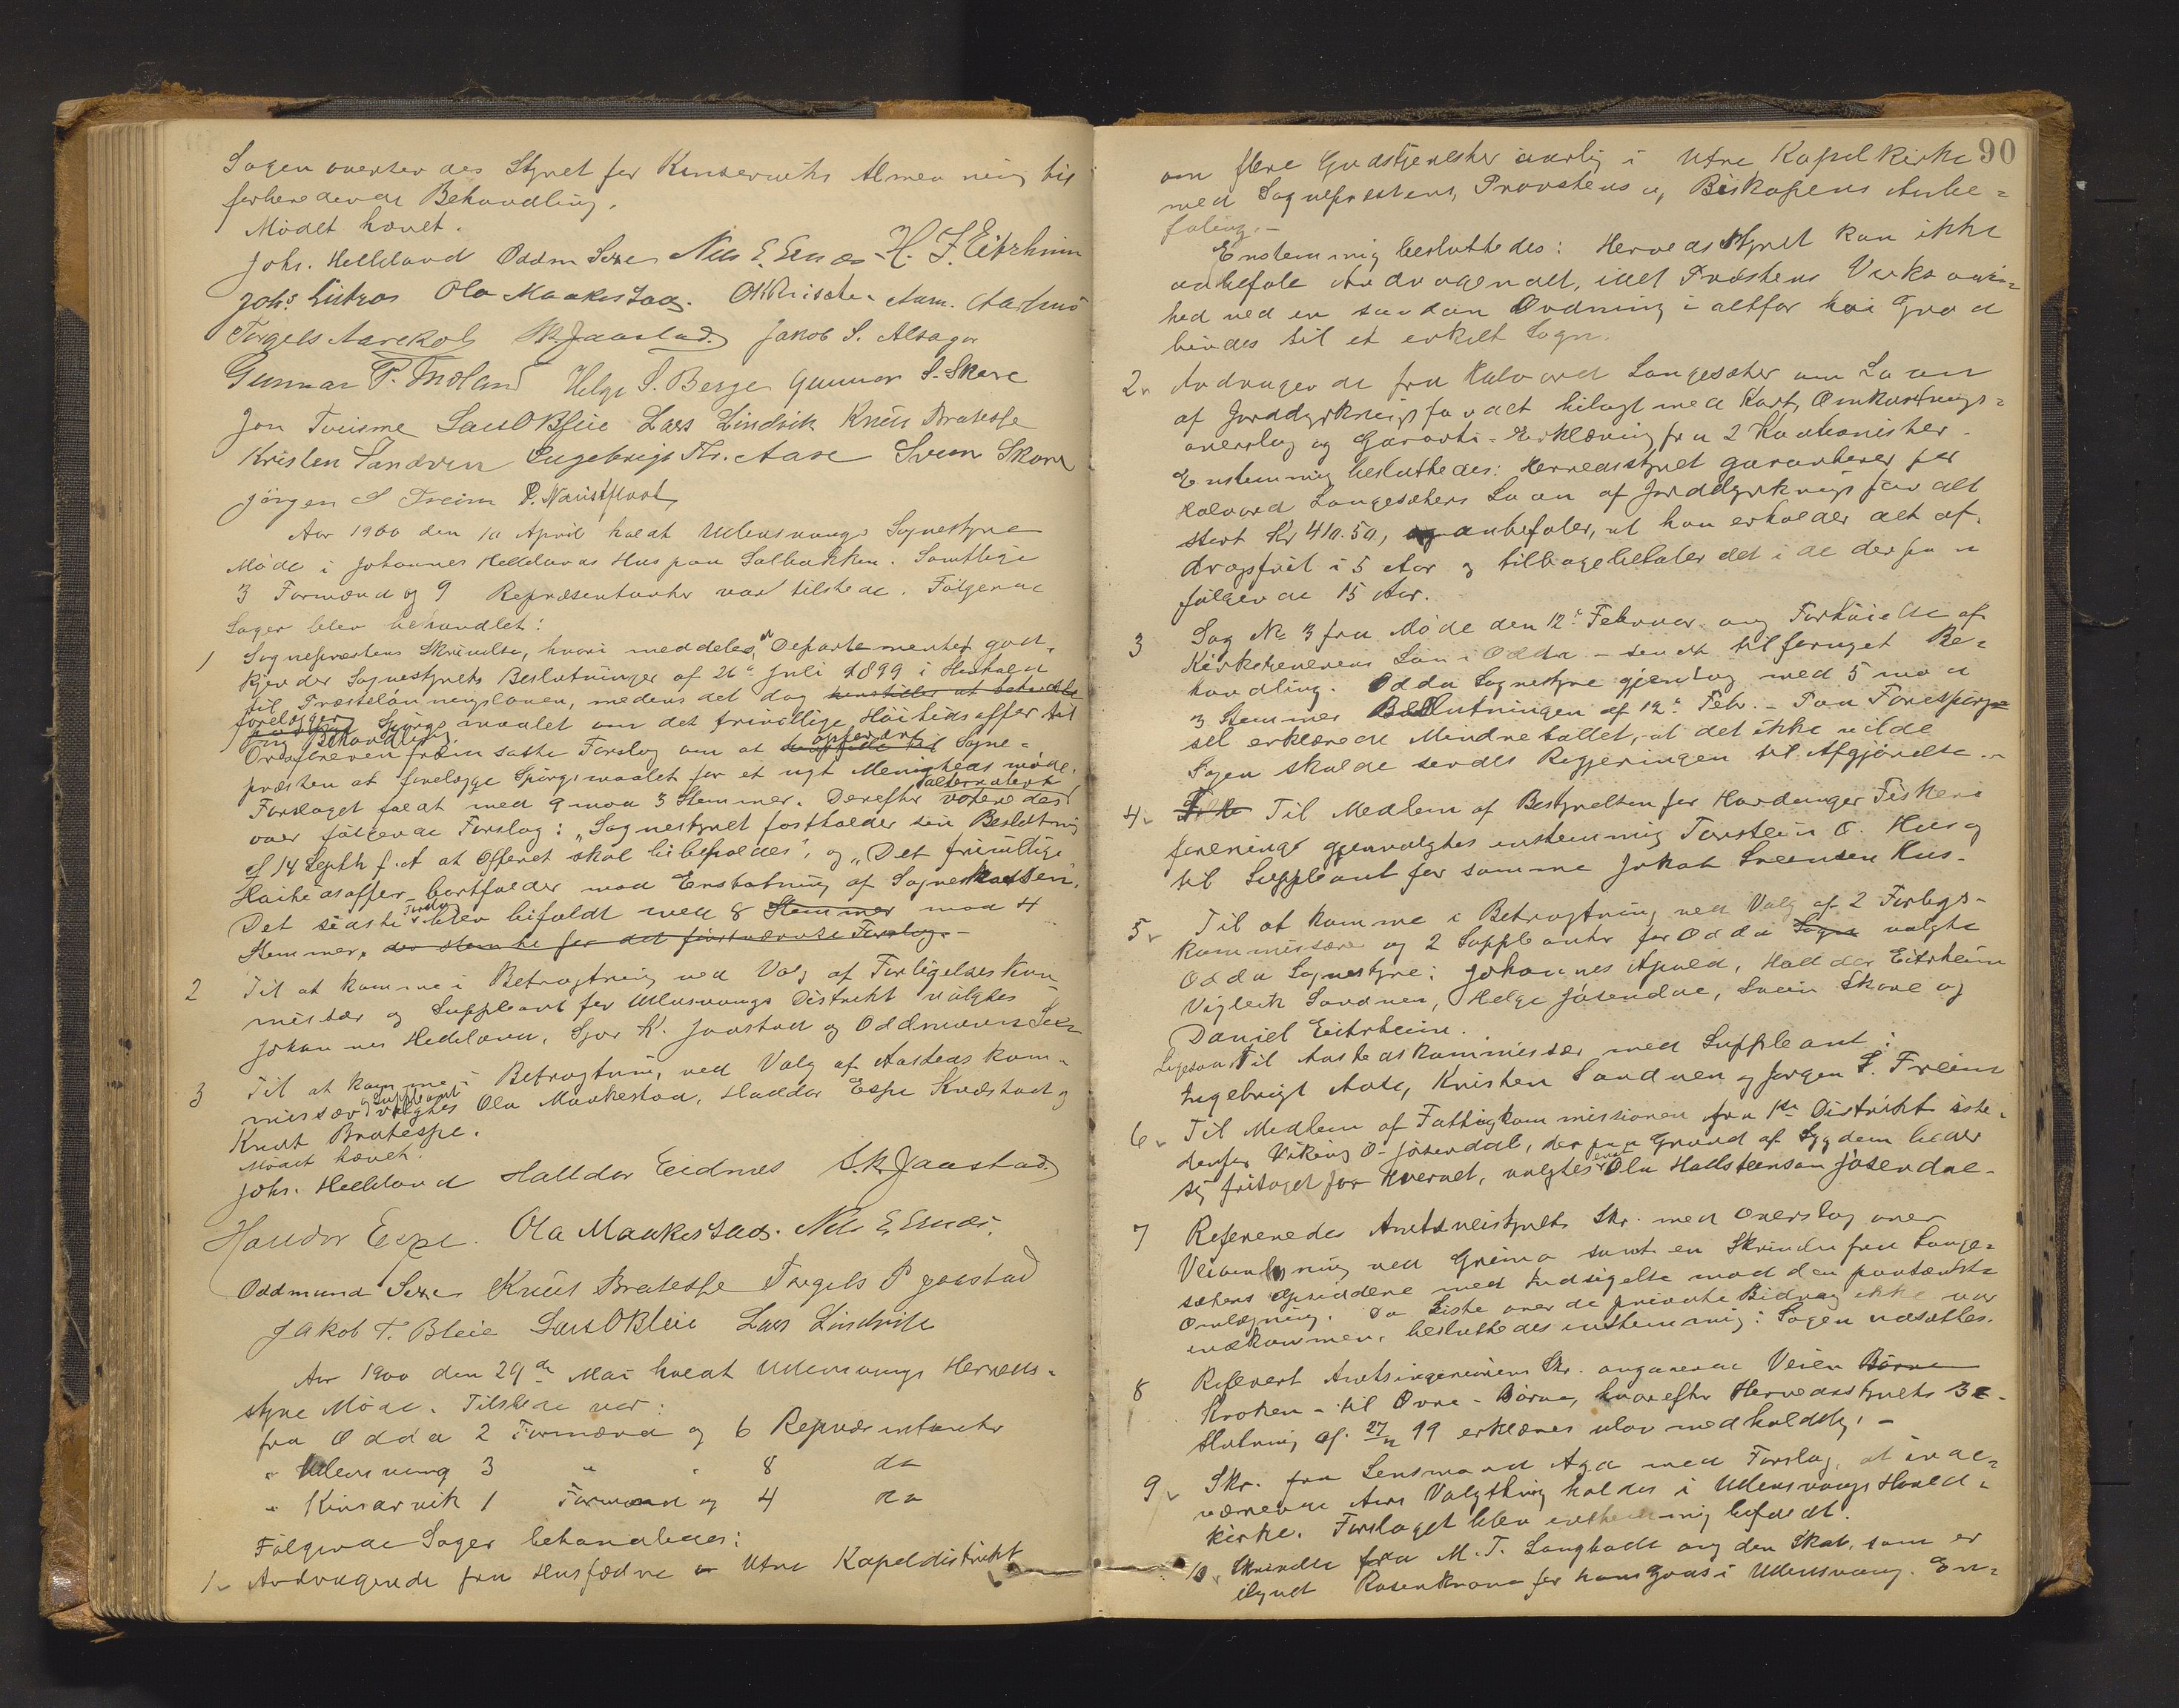 Sagen oversendes Styret for Kinserviks Almenning til
forberedende Behandling.
Mødet hævet.
Johs. Helleland Oddm Sexe Nils E. Eidnes H. J. Eitrheim
Johs Lütros Ola Maakestad. Aam. Aarhus
Torgels Aarekol S.K. Jaastad. Jakob S. Alsager
Gunnar P. Helge S. Berge Gunnar S. Skare
Jon Tveisme Lars O Bleie Lars Lindvik Knut Bratespe
Kristen Sandven Engebrigt Th. Aase Svein Skare
Jørgen S Freim P. Naustflaat
Aar 1900 den 10 April holdt Ullensvangs Sognestyre
Møde i Johannes Hellelands Hus paa Solbakken. Samtlige
3 Formænd og 9 Repræsentanter var tilstede. Følgende
Sager blev behandlet:
1 Sogneprestens Skrivelse, hvori meddeles, at Departementet god-
kjender Sognestyrets Beslutninger af 26de Juli 1899 i Henhold
til Præstelønningsloven, medens det dog henstiller at
forelægger Spørgsmaalet om det frivillige Høitidsoffer til
ny Behandling.
Ordføreren fremsatte Forslag om at opfordre Sogne-
præsten at forelægge Spørgsmaalet for et nyt Menighedsmøde.
Forslaget faldt med 9 mod 3 Stemmer. Derefter voteredes alternativt
over følgende Forslag: "Sognestyret fastholder sin Beslutning
af 14 Septbr f. A at Offeret skal bibeholdes", og "Det frivillige
Høitidsoffer bortfalder mod Erstatning af Sognekassen".
Det sidste Forslag blev bifaldt med 8 Stemmer mod 4
Stemmer, der stemte for det førstnævnte Forslag.-
2 Til at komme i Betragtning ved Valg af Forligelseskom
missær og Suppleant for Ullensvangs Distrikt valgtes
Johannes Helleland, Sjur K. Jaastad og Oddmund Sexe
3 Til at komme i Betragtning ved Valg af Aastedskom-
missær og Suppleant valgtes Ola Maakestad, Haldor Espe Kvæstad og
Knut Bratespe.
Mødet hævet.
Johs. Helleland Halldor Eidnes S.K. Jaastad
Haldor Espe. Ola Maakestad. Nils E Eidnes.
Oddmund Sexe Knut Bratespe Torgels P Jaastad
Jakob T. Bleie Lars O Bleie Lars Lindvik
Aar 1900 den 29de Mai holdt Ullensvangs Herreds-
styre Møde. Tilstede var:
fra Odda 2 Formænd og 6 Repræsentanter
" Ullensvang 3 " " 8 do
" Kinsarvik 1 Formænd og 4 do
Følgende Sager behandledes:
1. Andragende fra Husfædre i Utne Kapeldistrikt
90
om flere Gudstjenester aarlig i Utne Kapelkirke
med Sogneprestens, Provstens og Biskopens Anbe-
faling.-
Enstemmig besluttedes: Herredsstyret kan ikke
anbefale Andragendet, idet Prestens Virksom-
hed ved en saadan Ordning i altfor høi Grad
bindes til et enkelt Sogn.
2. Andragende fra Halvard Langesæter om Laan
af Jorddyrkningsfondet bilagt med Kart, Omkostnings-
overslag og Garanti-Erklæring fra 2 Kautionister.
Enstemmig besluttedes: Herredsstyret garanterer for
Halvard Langesæters Laan af Jorddyrkningsfondet
stort Kr 410.50, og anbefaler, at han erholder det af-
dragsfrit i 5 Aar og tilbagebetaler det i de derpaa
følgende 15 Aar.
3 Sag No 3 fra Møde den 12te Februar ang Forhøielse af
Kirketjenerens Løn i Odda - sendt til fornyet Be-
handling. Odda Sognestyre gjentog med 5 mod
3 Stemmer Beslutningen af 12te Febr.- Paa Forespørg-
sel erklærede Mindretallet, at det ikke vilde
Sagen skulde sendes Regjeringen til Afgjørelse.-
4. Til Medlem af Bestyrelsen for Hardanger Fiskeri
forenings gjenvalgtes enstemmig Torstein O. Hus og
til Suppleant for samme Jakob Sveinsen Hus-
5. Til at komme i Betragtning ved Valg af 2 Forligs-
kommissærer og 2 Suppleanter for Odda Sogn valgte
Odda Sognestyre: Johannes Apold, Halldor Eitrheim
Vigleik Sandven, Helge Jøsendal, Svein Skare og
Daniel Eitrheim.
Ligesaa Til Aastedskommissær med Suppleant:
Ingebrigt Aase, Kristen Sandven og Jørgen S. Freim
6. Til Medlem af Fattigkommissionen fra 1ste Distrikt iste-
denfor Viking O. Jøsendal, der paa Grund af Sygdom beder
sig fritaget for Hvervet, valgtes enst Ola Hallsteinsøn Jøsendal-
7 Refereredes Amtsveistyrets Skr. med Overslag over
Veiomlægning ved Grimo samt en Skrivelse fra Lange-
sæters Opsiddere med Indsigelse mod den paatænkte
Omlægning. Da Liste over de private Bidrag ikke var
indkommen, besluttedes enstemmig: Sagen udsættes.
8 Referert Amtsingeniørens Skr. angaaende Veien Børve
Kroken - til Øvre-Børve, hvorefter Herredsstyrets Be-
slutning af 27/11 99 erklæres ulov medholdelig.-
9. Skr. fra Lensmand Aga med Forslag, at inde-
værende Aars Valgthing holdes i Ullensvangs Hoved-
kirke. Forslaget blev enstemmig bifaldt.
10. Skrivelse fra M. T. Langballe ang den Skat, som er
ilignet Rosenkrone for hans Gods i Ullensvang. En-